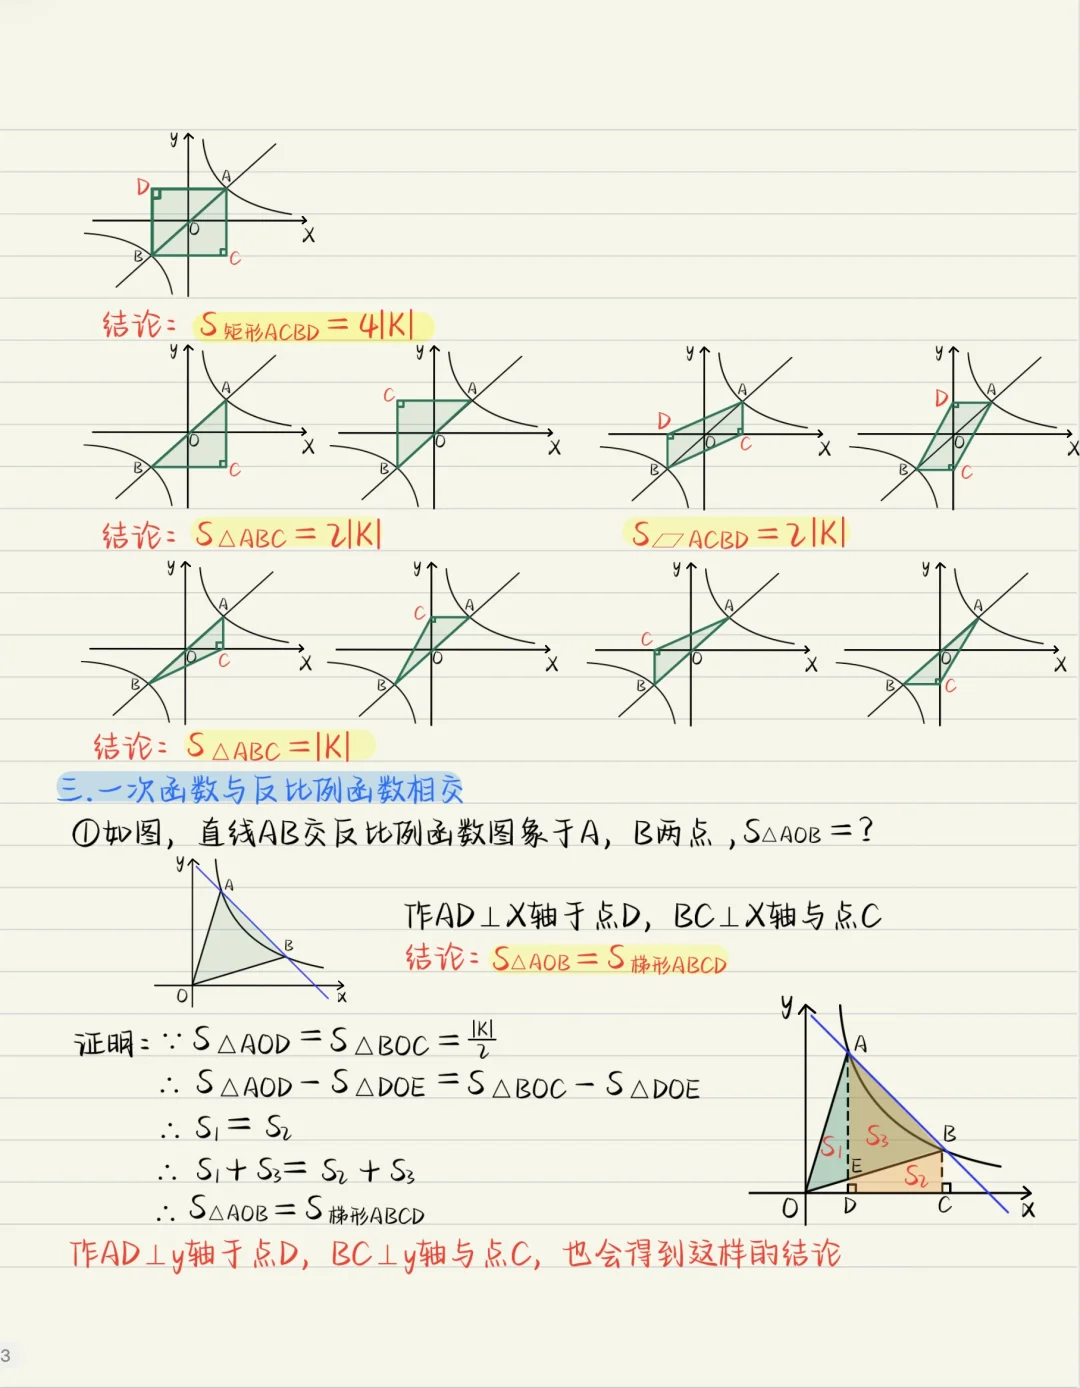 y
D
A
O
X
B
C
结论: S矩形ACBD = 4|K|
y y y y
A C A A D A
D
O X O X O C X O X
B C B B B C
结论: S△ABC = 2|K| S▱ACBD = 2|K|
y y y y
A C A A A
C
O C X O X O X O X
B B B B C
结论: S△ABC = |K|
三.一次函数与反比例函数相交
①如图, 直线AB交反比例函数图象于A, B两点, S△AOB = ?
y
A
B
O
x
作AD⊥X轴于点D, BC⊥X轴与点C
结论: S△AOB = S梯形ABCD
证明: ∵ S△AOD = S△BOC = |K|/2
∴ S△AOD - S△DOE = S△BOC - S△DOE
∴ S₁ = S₂
∴ S₁ + S₃ = S₂ + S₃
∴ S△AOB = S梯形ABCD
y
A
B
S₁ S₃
E S₂
O D C x
作AD⊥y轴于点D, BC⊥y轴与点C, 也会得到这样的结论
3